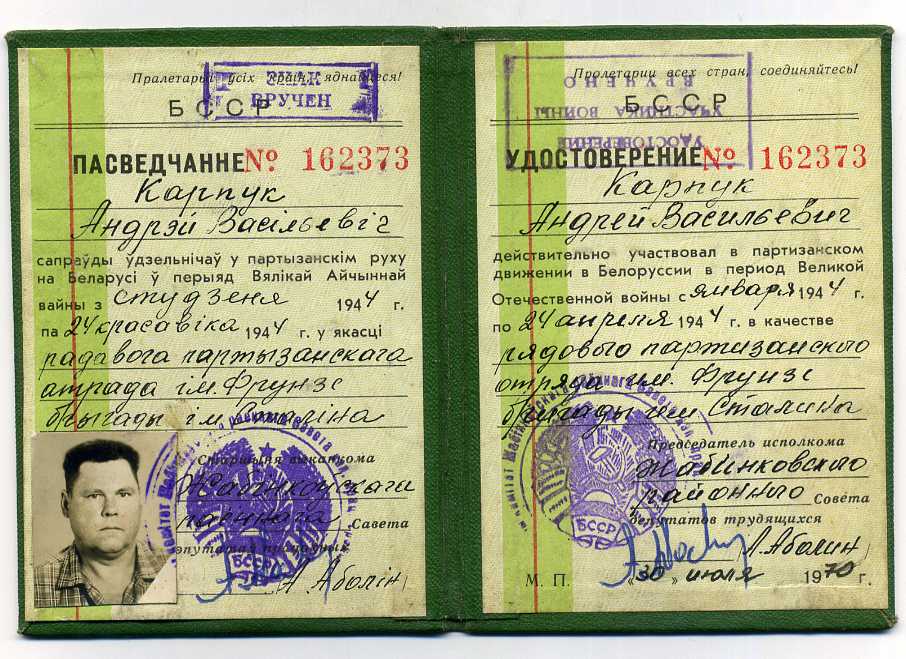 Пралетарыі ўсіх краін, яднайцеся!
ЗНАК
ВРУЧЕН
БССР
ПАСВЕДЧАННЕ № 162373
Карпук
Андрэй Васільевіч
сапраўды ўдзельнічаў у партызанскім руху
на Беларусі ў перыяд Вялікай Айчыннай
вайны з студзеня 1944 г.
па 24 красавіка 1944 г. у якасці
радавога партызанскага
атрада ім. Фрунзе
брыгады ім. Сталіна
Старшыня выканкома
Жабінкоўскага
раённага Савета
дэпутатаў працоўных
А. Аболін
БССР
Пролетарии всех стран, соединяйтесь!
УДОСТОВЕРЕНИЕ
УЧАСТНИКА ВОЙНЫ
ВРУЧЕНО
БССР
УДОСТОВЕРЕНИЕ № 162373
Карпук
Андрей Васильевич
действительно участвовал в партизанском
движении в Белоруссии в период Великой
Отечественной войны с января 1944 г.
по 24 апреля 1944 г. в качестве
рядового партизанского
отряда им. Фрунзе
бригады им. Сталина
Председатель исполкома
Жабинковского
районного Совета
депутатов трудящихся
А. Аболин
М. П. „30" июля 1970 г.
БССР